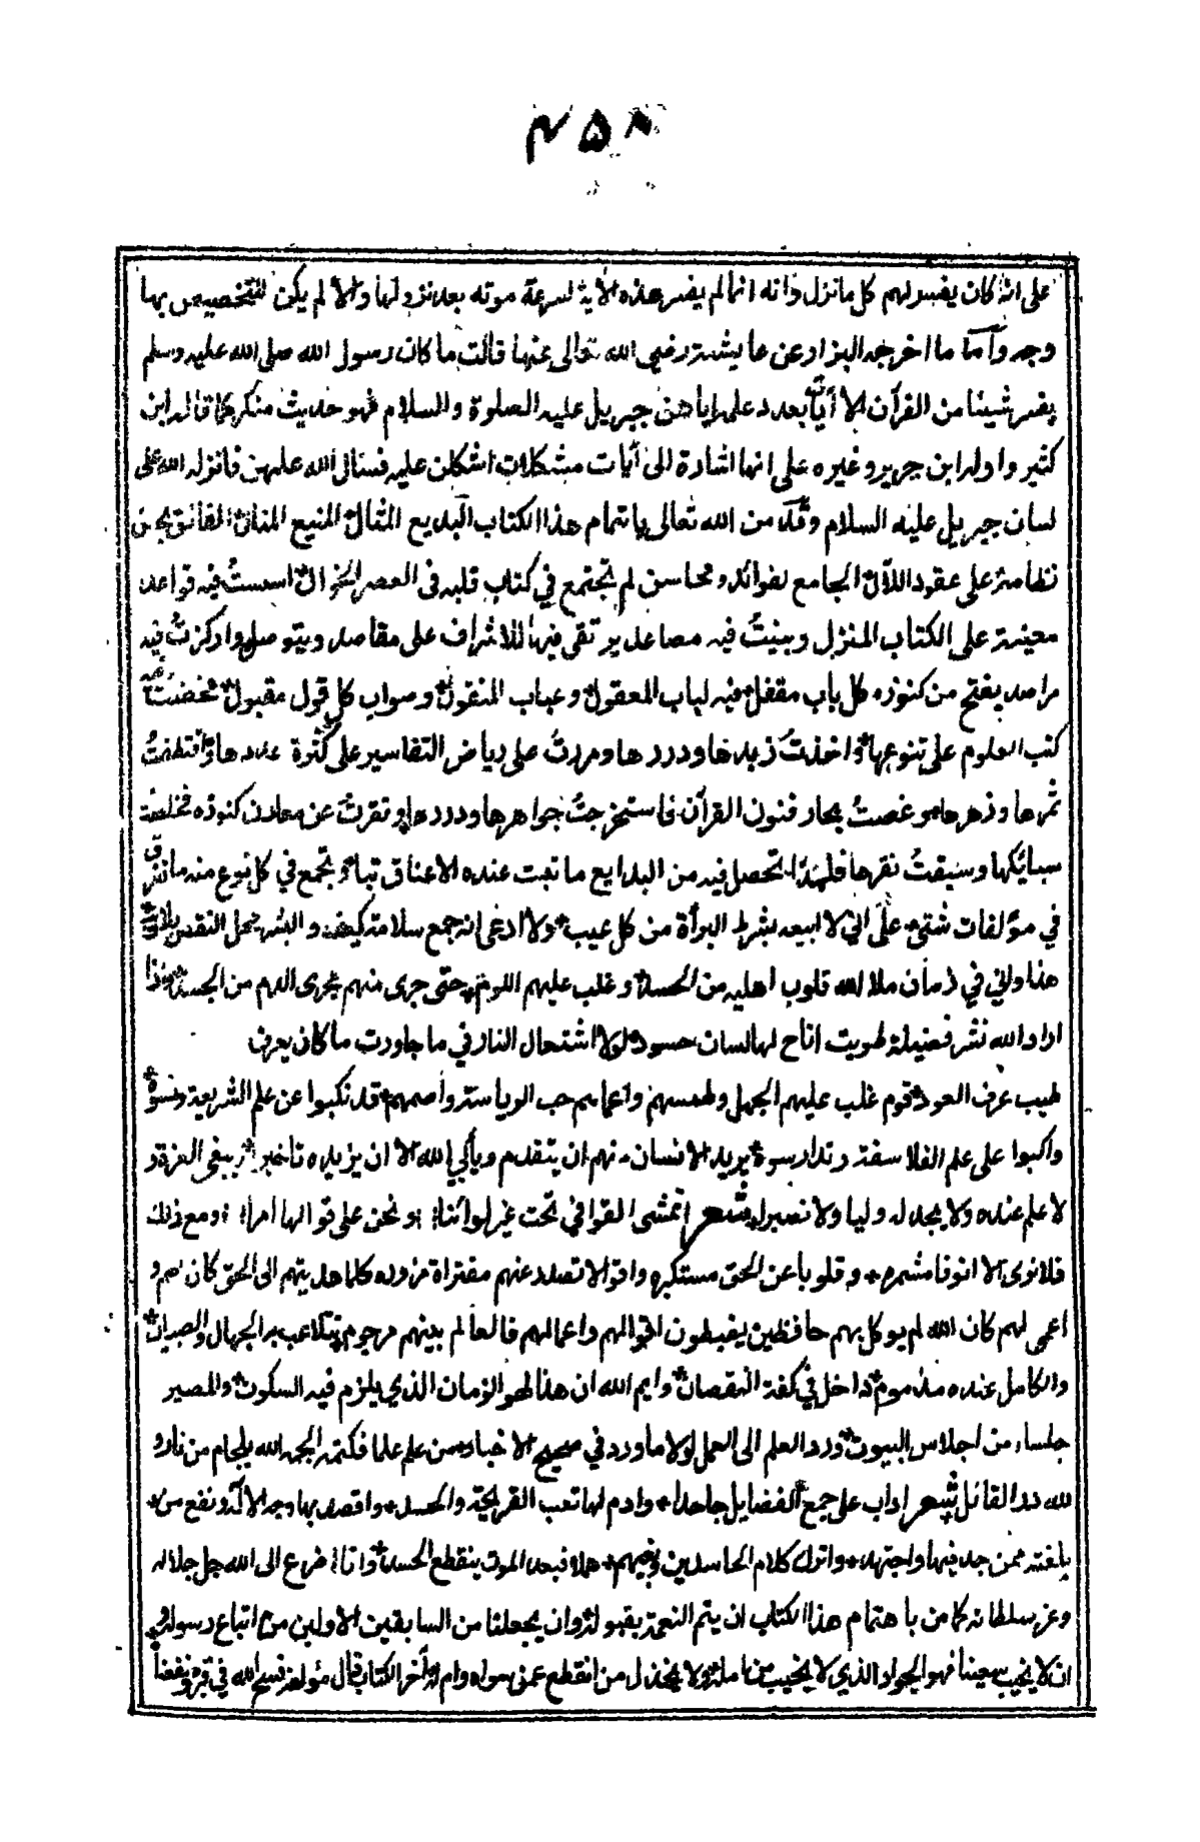 ٤٥٨
على انه كان يفسر لهم كل ما نزل وانه انما لم يفسر هذه الآية لسرعة موته بعد نزولها والا لم يكن للتخصيص بها
وجه وأما ما اخرجه البزار عن عايشة رضي الله تعالى عنها قالت ما كان رسول الله صلى الله عليه وسلم
يفسر شيئا من القرآن الا أيات بعدد علمه اياهن جبريل عليه الصلوة والسلام فهو حديث منكر كما قاله ابن
كثير واوله ابن جرير وغيره على انها اشارة الى أيات مشكلات اشكلن عليه فسئال الله علمهن فانزله الله على
لسان جبريل عليه السلام وقد من الله تعالى باتمام هذا الكتاب البديع المثال المنيع المنال الفائق بحسن
نظامه على عقود اللآل الجامع لفوائد ومحاسن لم تجتمع في كتاب قبله في العصر الخوال اسست فيه قواعد
معينة على الكتاب المنزل وبينت فيه مصاعد يرتقى فيها للاشراف على مقاصده ويتوصل واركزت فيه
مراصد يفتح من كنوزه كل باب مقفل فيه لباب المعقول وعباب المنقول وصواب كل قول مقبول مخضت فيه
كتب العلوم على تنوعها واخذت زبدها ودررها ومررت على رياض التفاسير على كثرة عددها واقتطفت
ثمرها وزهرها وغصت بحار فنون القرآن فاستخرجت جواهرها ودررها ونقرت عن معادن كنوزه فخلصت
سبائكها وسبقت نقرها فلهذا تحصل فيه من البدايع ما تبت عنده الاعناق تبا وتجمع في كل نوع منه ما تفرق
في مؤلفات شتى على اني لا ابيعه بشرط البرأة من كل عيب ولا ادعى انه جمع سلامة كيف والبشر محل النقص بلا ريب
هذا واني في زمان ملا الله قلوب اهليه من الحسد وغلب عليهم اللوم حتى جرى منهم مجرى الدم من الجسد واذا
اراد الله نشر فضيلة طويت اتاح لها لسان حسود لولا اشتعال النار في ما جاورت ما كان يعرف
طيب عرف العود قوم غلب عليهم الجهل وطمسهم واعماهم حب الرياسة واصمهم قد نكبوا عن علم الشريعة ونسوه
واكبوا على علم الفلاسفة وتدارسوه يريد الانسان منهم ان يتقدم ويأبى الله الا ان يزيده تأخيرا ويبغى العزة و
لا علم عنده ولا يجد له وليا ولا نصيرا شعر اتمشى القوافي تحت غير لوائنا ونحن على قوالها امراء ومع ذلك
فلا ترى الا انوفا مشمره وقلوبا عن الحق مستكبره واقوالا تصدر عنهم مفتراة مزوره كلما هديتهم الى الحق كان اصم و
اعمى لهم كان الله لم يوكل بهم حافظين يضبطون اقوالهم واعمالهم فالعالم بينهم مرجوم يتلاعب به الجهال والصبيان
والكامل عنده مذموم داخل في كفة النقصان وايم الله ان هذا لهو الزمان الذي يلزم فيه السكوت والمصير
جلساء من اجلاس البيوت ورد العلم الى العمل لولا ما ورد في صحيح الاخبار من علم علما فكتمه الجمه الله بلجام من نار و
لله در القائل شعر اداب على جمع الفضايل جاهدا وادم لها تعب القريحة والجسد واقصد بها وجه الاله ونفع من
بلغته ممن جد فيها واجتهد واترك كلام الحاسدين وبغيهم هملا فبعد الموت ينقطع الحسد وانا اضرع الى الله جل جلاله
وعز سلطانه كما من باهتمام هذا الكتاب ان يتم النعمة بقبوله وان يجعلنا من السابقين الاولين من اتباع رسوله و
ان لا يخيب سعينا فهو الجواد الذي لا يخيب من امله ولا يخذل من انقطع عمن سواه وام له أخر الكتاب قال مؤلفه فسح الله في قبره ونفعنا